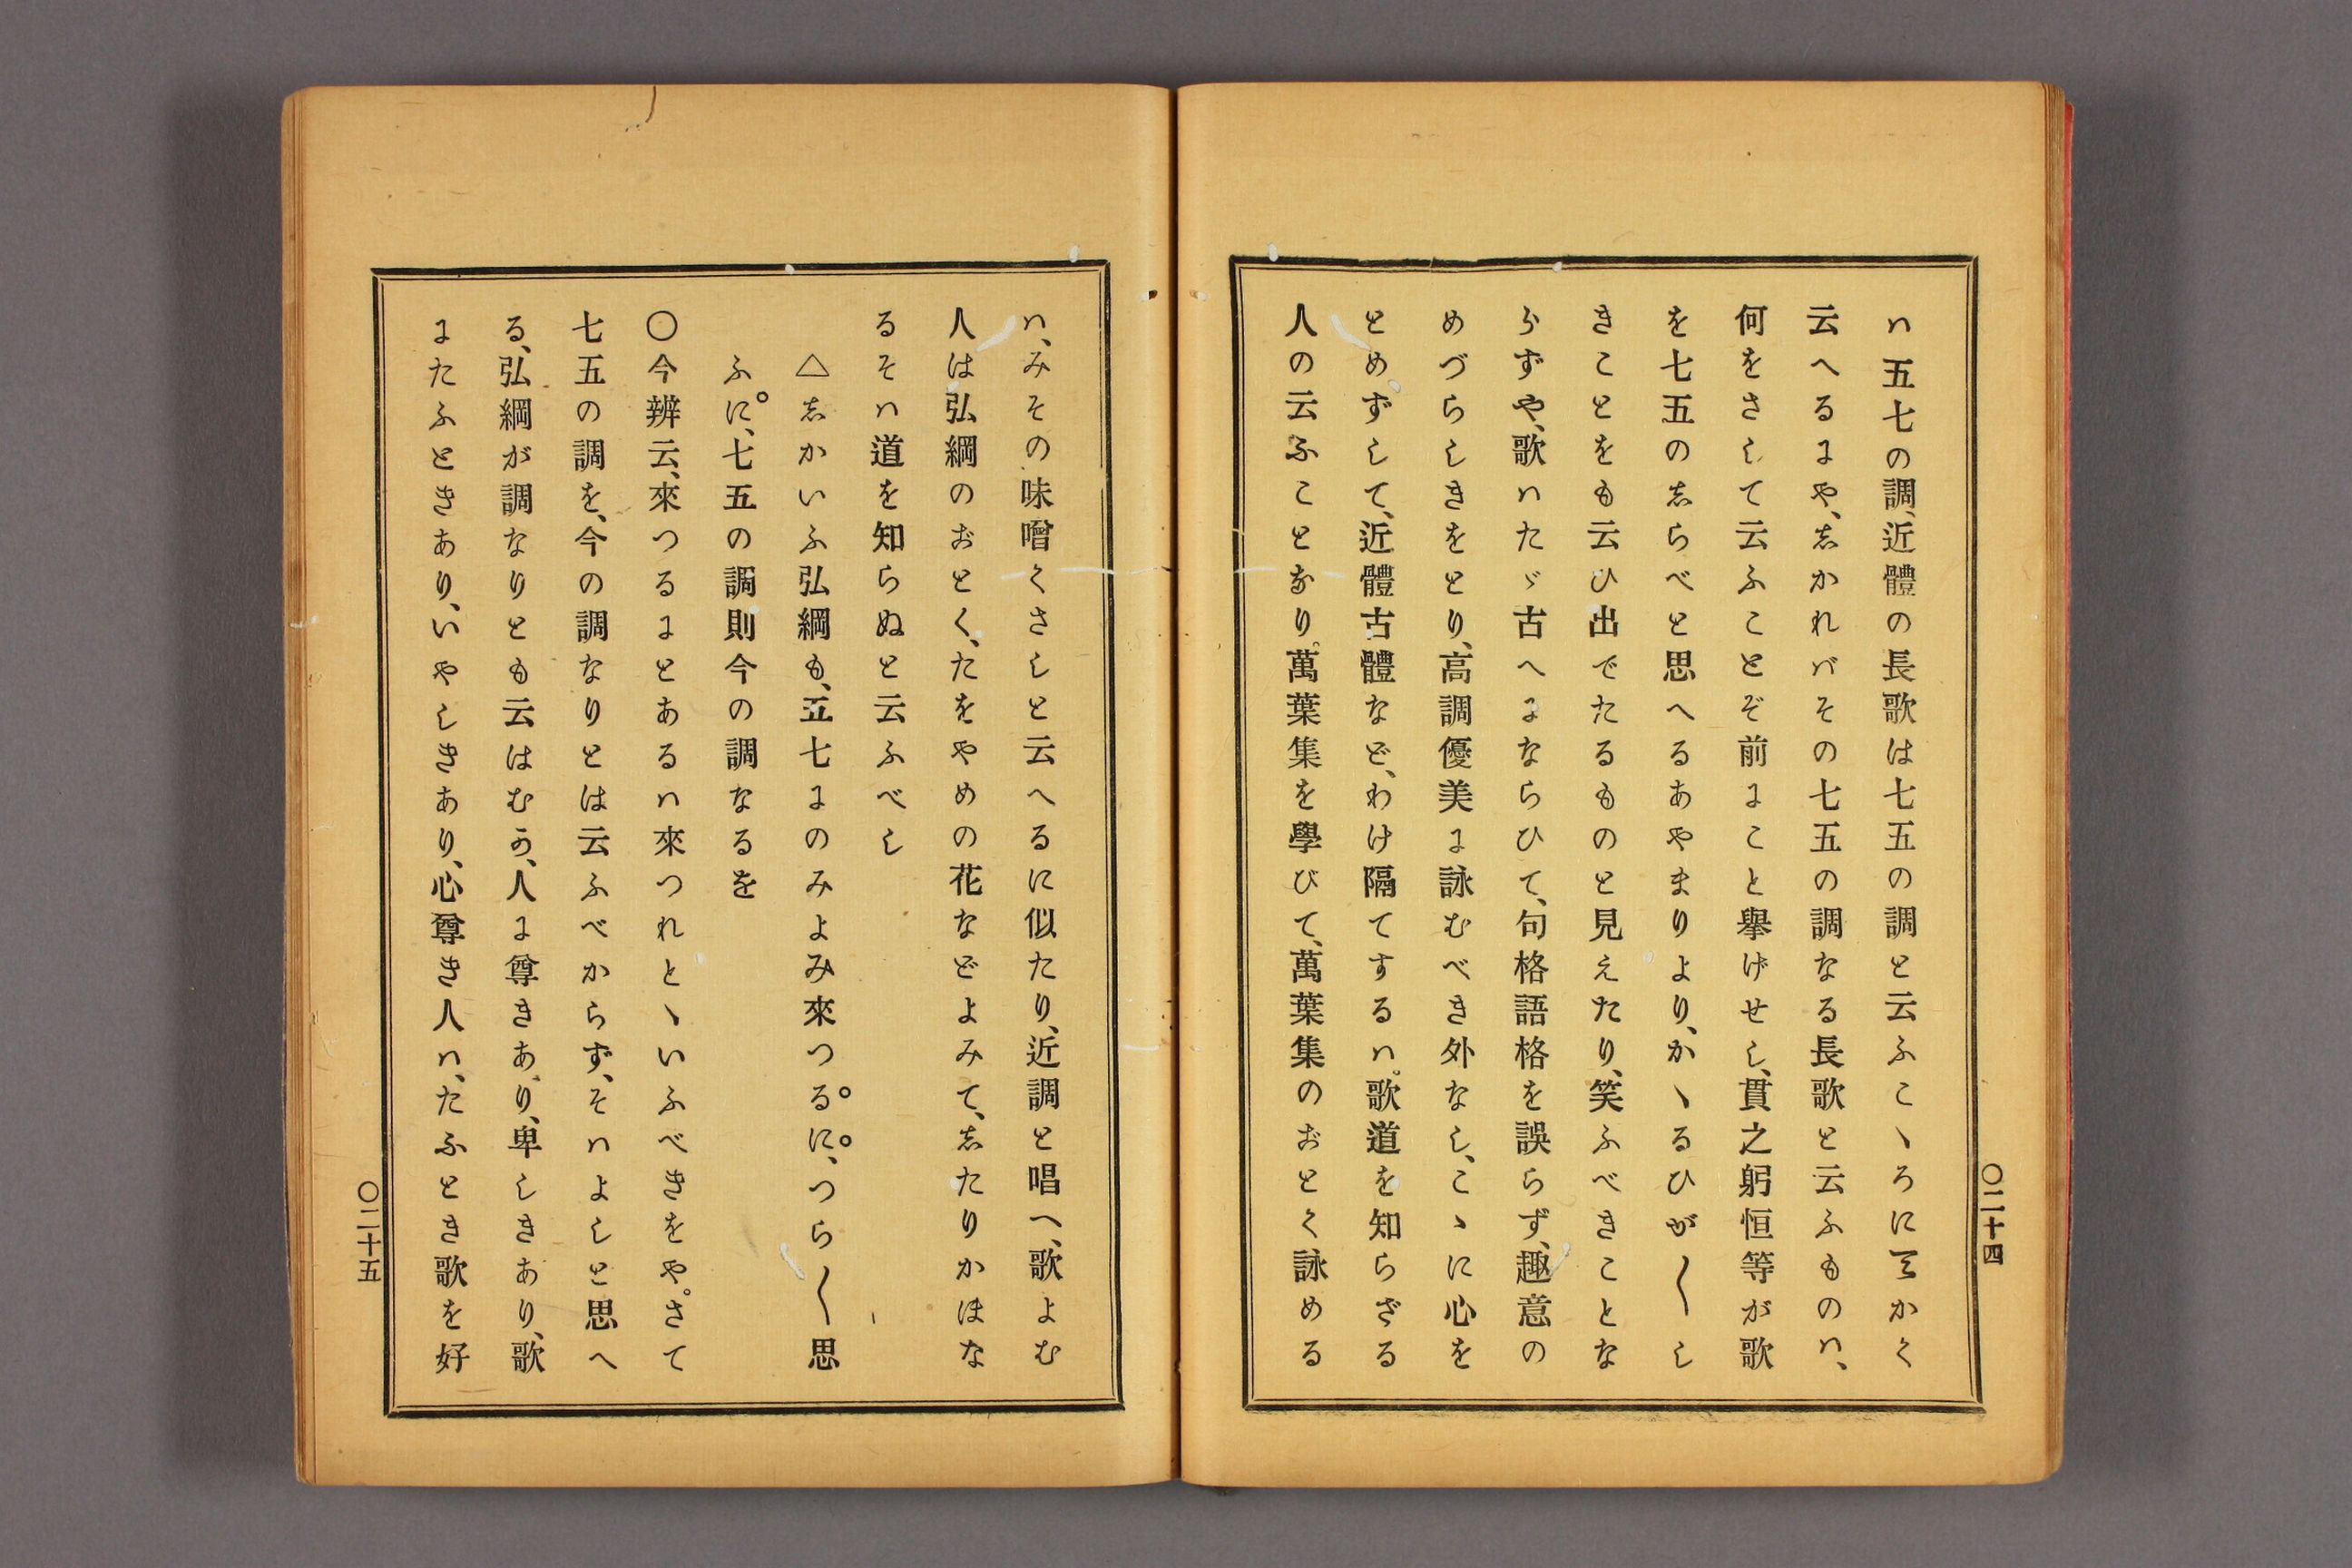 ハ五七の調、近體の長歌は七五の調と云ふこヽろにてかく
云へるにや、しかれバその七五の調なる長歌と云ふものハ、
何をさして云ふことぞ前にこと擧げせし、貫之躬恒等が歌
を七五のしらべと思へるあやまりより、かヽるひが〱し
きことをも云ひ出でたるものと見えたり、笑ふべきことな
らずや、歌ハたゞ古へにならひて、句格語格を誤らず、趣意の
めづらしきをとり、高調優美に詠むべき外なし、こゝに心を
とめずして、近體古體など、わけ隔てするハ。歌道を知らざる
人の云ふことなり。萬葉集を學びて、萬葉集のおとく詠める
〇二十四
ハ、みその味噌くさしと云へるに似たり、近調と唱へ、歌よむ
人は弘綱のおとく、たをやめの花などよみて、したりかほな
るそハ道を知らぬと云ふべし
△しかいふ弘綱も、五七にのみよみ來つる。に。、つら〱思
ふに。、七五の調則今の調なるを
〇今辨云、來つるにとあるハ來つれとヽいふべきをや。さて
七五の調を、今の調なりとは云ふべからず、そハよしと思へ
る、弘綱が調なりとも云はむか、人に尊きあり、卑しきあり、歌
にたふときあり、いやしきあり、心尊き人ハ、たふとき歌を好
〇二十五